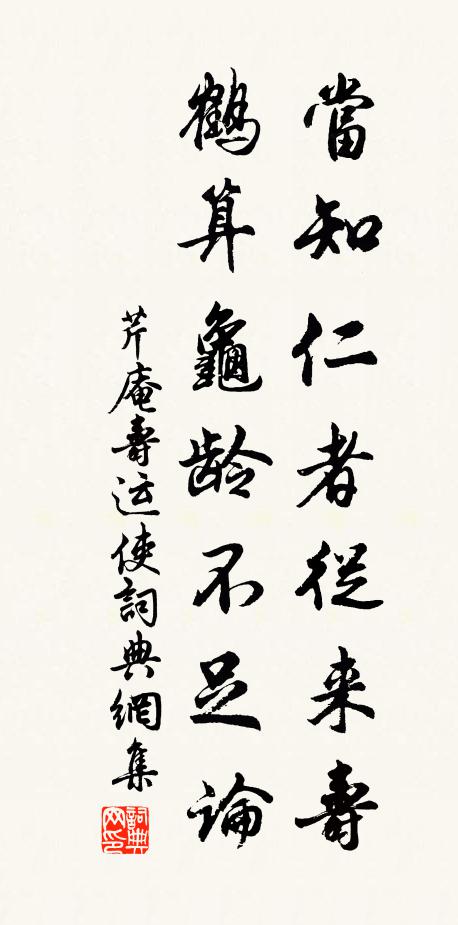 當知仁者從来壽
鶴算龜龄不足論
芹庵壽运使詞典網集
詞典网印